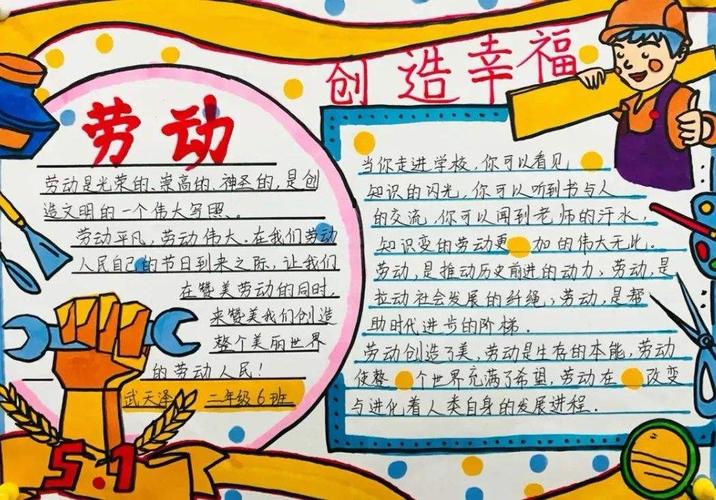 劳动
创造幸福
劳动是光荣的、崇高的、神圣的,是创
造文明的一个伟大写照、。
劳动平凡,劳动伟大。在我们劳动
人民自己的节日到来之际,让我们
在赞美劳动的同时,
来赞美我们创造
整个美丽世界
的劳动人民!
武天泽 二年级6班
5.1
当你走进学校,你可以看见
知识的闪光,你可以听到书与人
的交流,你可以闻到老师的汗水,
知识变的劳动更加的伟大无比.
劳动,是推动历史前进的动力,劳动,是
拉动社会发展的纤绳,劳动,是帮
助时代进步的阶梯.
劳动创造了美,劳动是生存的本能,劳动
使整个世界充满了希望,劳动在改变
与进化着人类自身的发展进程.